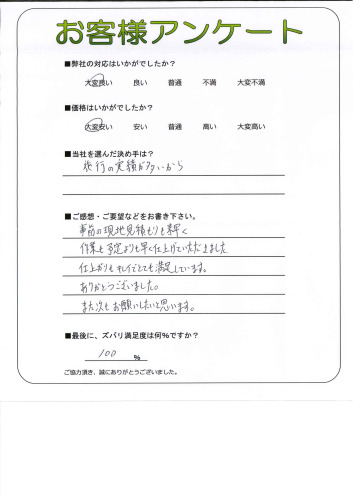 お客様アンケート
■弊社の対応はいかがでしたか？
大変良い 良い 普通 不満 大変不満
■価格はいかがでしたか？
大変安い 安い 普通 高い 大変高い
■当社を選んだ決め手は？
施行の実績が多いから
■ご感想・ご要望などをお書き下さい。
事前の現地見積もりも素早く
作業も予定よりも早く仕上げていただきました
仕上がりもキレイでとても満足しています。
ありがとうございました。
また次もお願いしたいと思います。
■最後に、ズバリ満足度は何%ですか？
100 %
ご協力頂き、誠にありがとうございました。